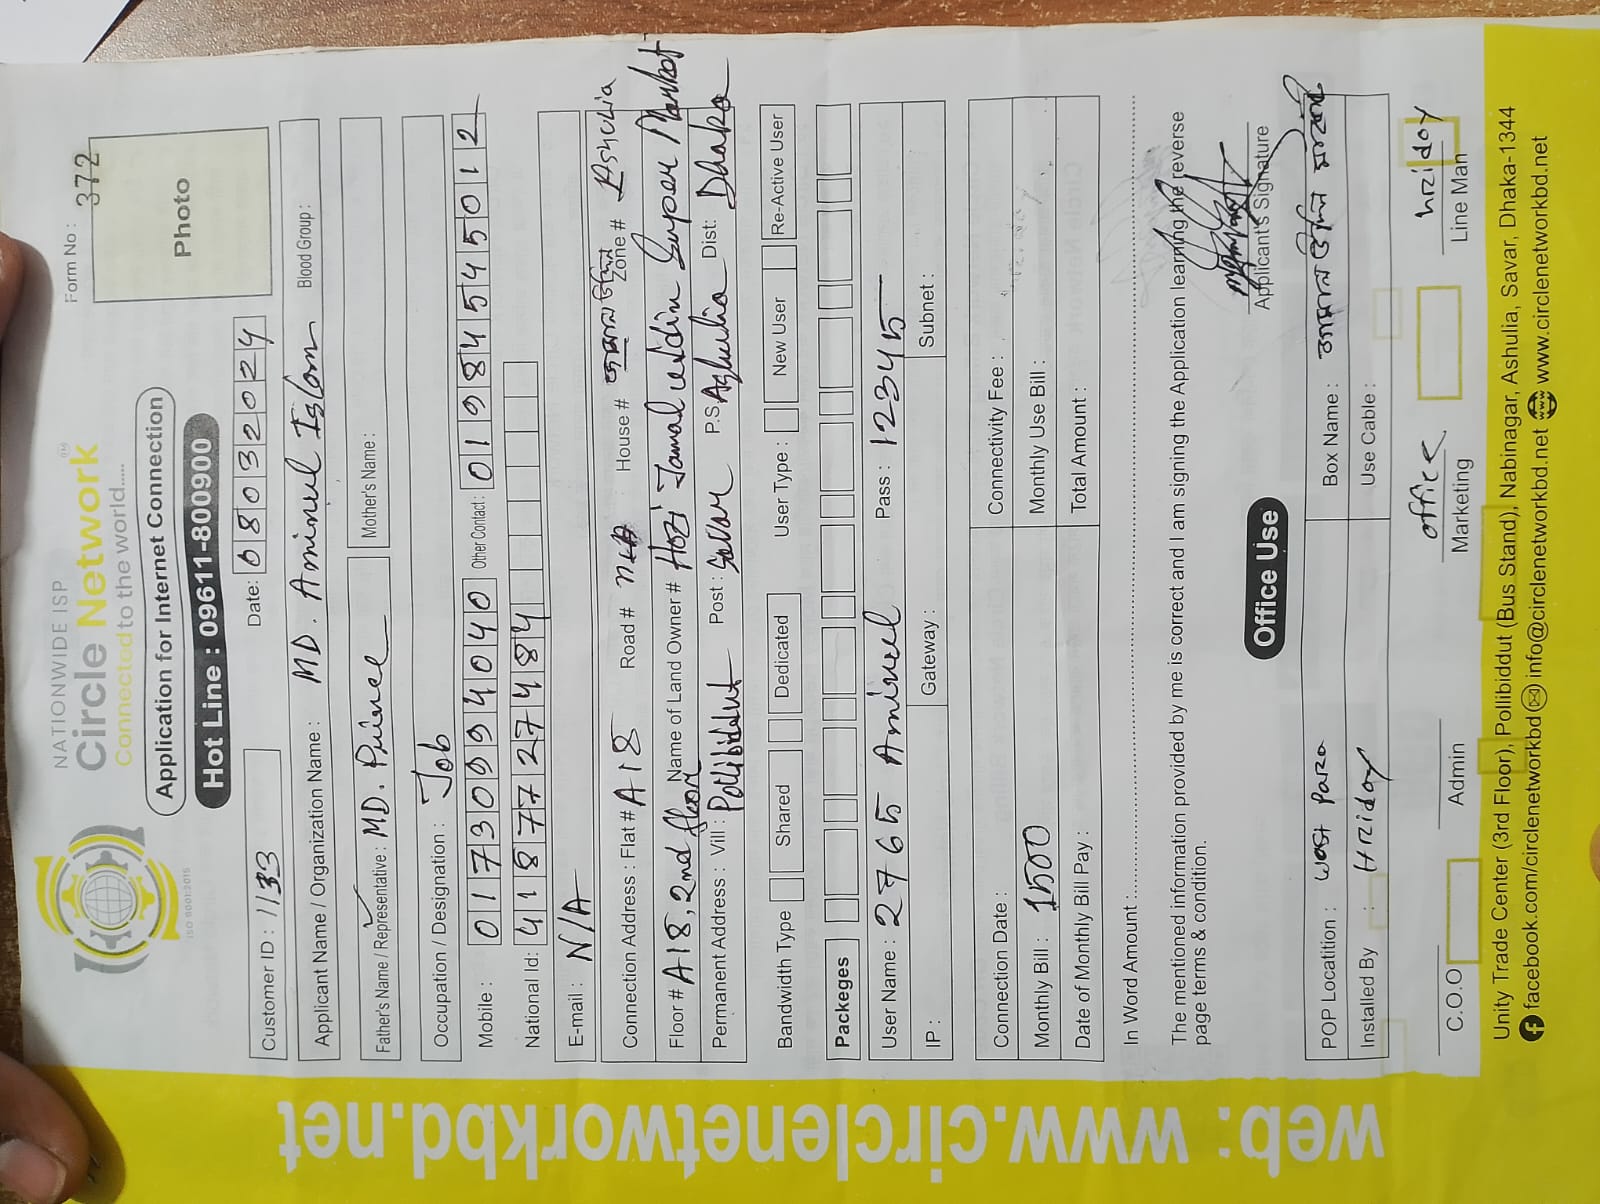 NATIONWIDE ISP
Circle Network™
Connected to the world.....
ISO 9001:2015
Form No : 372
Photo
Application for Internet Connection
Hot Line : 09611-800900
Customer ID : 1133
Date: 08032024
Applicant Name / Organization Name : MD. Aminul Islam Blood Group :
Father's Name / Representative : MD. Prince Mother's Name :
Occupation / Designation : Job
Mobile : 01730994040 Other Contact: 01984545012
National Id: 4187727484
E-mail : N/A
Connection Address : Flat # A18 Road # N/A House # জামাল উদ্দিন Zone # Ashulia
Floor # A18, 2nd floor Name of Land Owner # Hazi Jamal uddin Super Market
Permanent Address : Vill : Pollibiddut Post : Savar P.S. Ashulia Dist: Dhaka
Bandwidth Type Shared Dedicated User Type : New User Re-Active User
Packeges
User Name : 2765 Aminul Pass : 12345
IP : Gateway : Subnet :
Connection Date : Connectivity Fee :
Monthly Bill : 1500 Monthly Use Bill :
Date of Monthly Bill Pay : Total Amount :
In Word Amount :
The mentioned information provided by me is correct and I am signing the Application learning the reverse
page terms & condition.
Applicant's Signature
Office Use
POP Location : West Para Box Name : জামাল উদ্দিন মার্কেট
Installed By : Hridoy Use Cable :
office hridoy
C.O.O Admin Marketing Line Man
Unity Trade Center (3rd Floor), Pollibiddut (Bus Stand), Nabinagar, Ashulia, Savar, Dhaka-1344
facebook.com/circlenetworkbd info@circlenetworkbd.net www.circlenetworkbd.net
web: www.circlenetworkbd.net